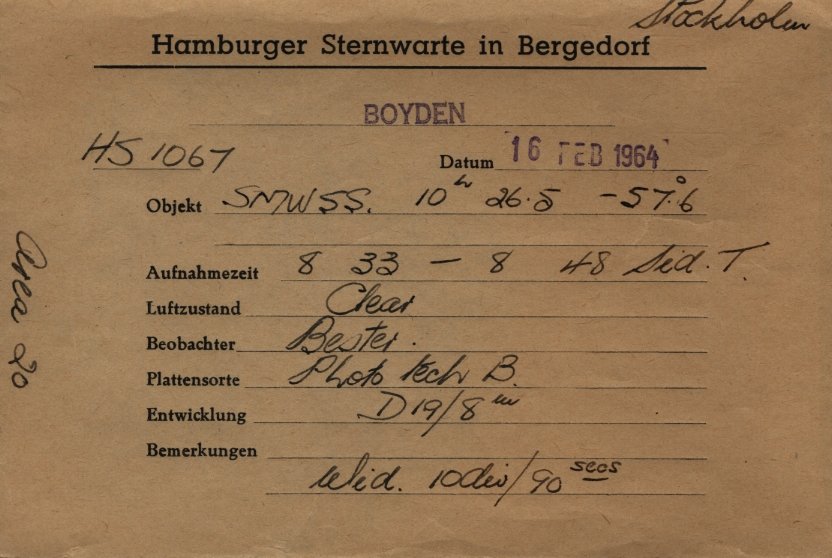 Stockholm
Hamburger Sternwarte in Bergedorf
BOYDEN
HS 1067
Datum 16 FEB 1964
Objekt SMWSS. 10h 26.5 -57°.6
Aufnahmezeit 8 33 - 8 48 Sid. T.
Luftzustand Clear
Beobachter Bester.
Plattensorte Photo tech B.
Entwicklung D19/8m
Bemerkungen
Wid. 10div/90 secs
Area 20